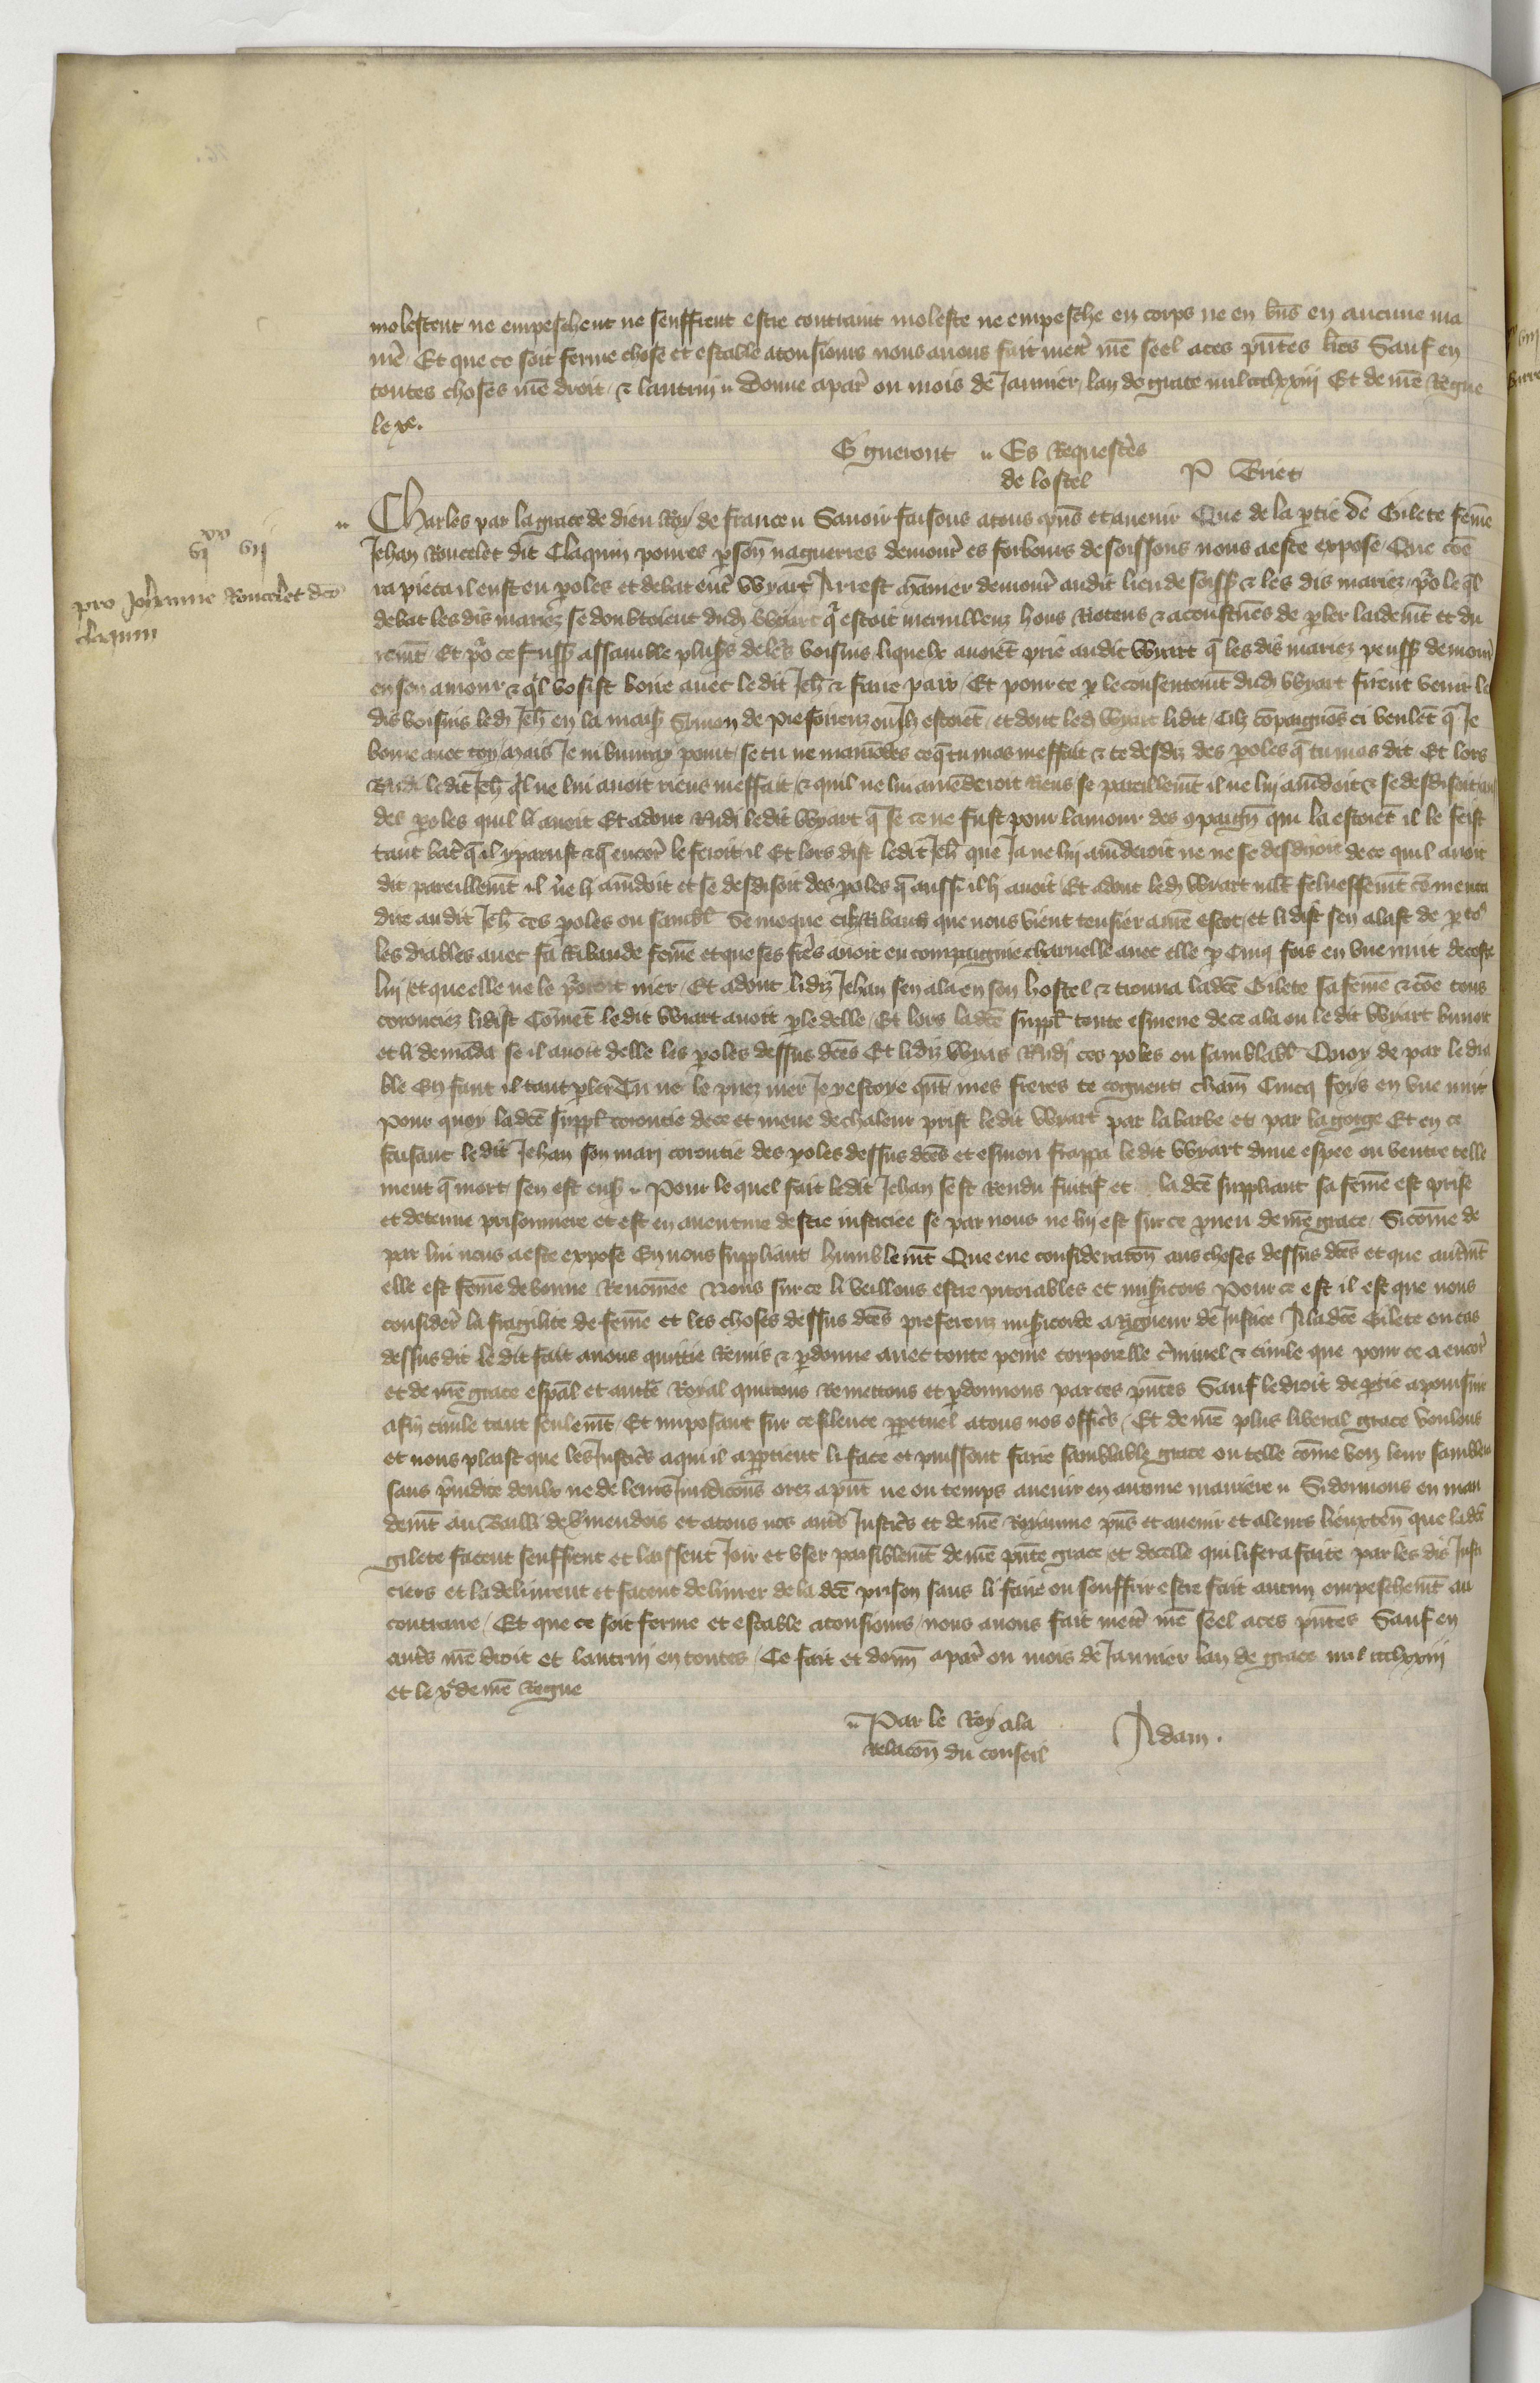 molestent ne empeschent ne seuffrent estre contraint moleste ne empesche en corps ne en bn̄s en aucune ma
nie᷒ Et que ce soit ferme chose et estable a tousiours nous auons fait mett᷒ nr̄e seel a ces p̄ntes lr̄es Sauf en
toutes choses nr̄e droit ⁊ lautruy Donne a par᷒ ou mois de Januier lan de grace mil ccclxxiij Et de nr̄e Regne
le xe.
Es Requestes
de lostel P Briet
Charles par la grace de dieu Roy de france Sauoir faisons a tous p̄ns et auenir Que de la ꝑtie de Gilete fem̄e
Jehan Roucelet dit Claquin poures ꝑson̄ nagueres demour᷒ es forbours de soissons nous a este expose Que cōe
ja pieca il eust eu ꝑoles et debat ent᷒ Wyart Arrest demour᷒ audit lieu de soiss ⁊ les dis mariez po᷒ le q̄l
debat les dis mariez se doubtoient dud Wyart q̄ estoit merueilleux homs Rioteus ⁊ acoustumes de ꝑler laidemt̄ et du
remt̄ Et po᷒ ce fuss assamble plus᷒s de le᷒s voisins liquelx auoiēt prie audit Wyart q̄ les dis mariez peuss demour᷒
en son amour ⁊ q̄l vosist boire auec le dit Jeh̄ ⁊ faire paix Et pour ce ꝑ le consentemt̄ dud Wyart firent venir les
dis voisins led Jeh̄ en la mais Simon de ou ilz estoiēt et dont led Wyart li dit Cilz cōpaignōs ci veulēt q̄ Je
boiue auec toy mais Je ni buuray point se tu ne mamēdes ce q̄ tu mas meffait ⁊ te desdiz des ꝑoles q̄ tu mas dit Et lors
Rn̄di le dit Jeh̄ q̄l ne lui auoit riens meffait ⁊ quil ne lui amēderoit Riens se pareillemt̄ il ne lui amēdoit ⁊ se desdisoit
des ꝑoles quil li auoit Et adont Rn̄di le dit Wyart q̄ se ce ne fust pour lamour des ꝯpaigns qui la estoiēt il le feist
tant bat᷒ q̄ il y parust ⁊ q̄ encor᷒ le feroit il Et lors dist le dit Jeh̄ que Ja ne lui amēderoit ne ne se desdiroit de ce quil auoit
dit pareillemt̄ il ne li amēdoit et se desdisoit des ꝑoles q̄ aussi il li auoit Et adont led Wyart mlt̄ felnessemt̄ cōmenca
dire audit Jeh̄ ces ꝑoles ou sambl᷒ Se moque cilz Ribaus que nous vient tensier a nr̄e escot et li dist sen alast de ꝑ to᷒
les diables auec sa Ribaude fem̄e et que ses fre᷒s auoit eu compaignie charnelle auec elle ꝑ Cinq fois en vne nuit decoste
lui et que elle ne le po᷒roit nier Et adont li diz Jehan sen ala en son hostel ⁊ trouua lad̄ce Gilete sa fem̄e ⁊ cōe tous
corouciez li dist Com̄et le dit Wiart auoit ꝑle delle Et lors lad̄ce suppl᷒ toute esmeue de ce ala ou le dit Wyart buuoit
et li demāda se il auoit delle les ꝑoles dessus dc̄es Et li diz Wyars Rn̄di ces ꝑoles ou samblabl᷒ Quoy de par le dia
ble En faut il tant ꝑler Tu ne le puez nier Je y estoye qn̄t mes freres te cognut charn̄ Cincq foys en vne nuit
Pour quoy lad̄ce suppl᷒ coroucie de ce et meue de chaleur prist le dit Wyart par la barbe et par la gorge Et en ce
faisant le dit Jehan son mari coroucie des ꝑoles dessus dc̄es et esmeu frappa le dit Wyart dune espee ou ventre telle
ment q̄ mort sen est ens Pour le quel fait le dit Jehan sest Rendu fuitif et lad̄ce suppliant sa fem̄e est prise
et detenue prisonniere et est en auenture destre iusticiee se par nous ne lui est sur ce pourueu de nr̄e grace Si com̄e de
par lui nous a este expose En nous suppliant humblemt̄ Que eue consideracōn aus choses dessus dc̄es et que autremt̄
elle est fem̄e de bonne Renom̄ee Nous sur ce li veillons estre pitoiables et mis᷒icors Pour ce est il est que nous
consider᷒ la fragilite de fem̄e et les choses dessus dc̄es preferens mis᷒icorde a Rigueur de Justice A lad̄ce Gilete ou cas
dessus dit le dit fait auons quittie Remis ⁊ ꝑdonne auec toute peine corporelle c᷒minel ⁊ ciuile que pour ce a encor᷒
et de nr̄e grace esp̄al et aut᷒te Royal quittons Remettons et ꝑdonnons par ces p̄ntes Sauf le droit de ꝑtie a poursuir
a fin ciuile tant seulemt̄ Et imposant sur ce silence ꝑpetuel a tous nos offic᷒s Et de nr̄e plus liberal grace voulons
et nous plaist que les Justic᷒s a qui il apꝑtient li face et puissent faire samblable grace ou telle com̄e bon leur samblera
sans p᷒iudice deulx ne de leurs Juridicōns orez a p̄nt ne ou temps auenir en aucune maniere Si donnons en man
demt̄ au Bailli de v᷒mendois et a tous nos aut᷒s Justic᷒s et de nr̄e Royaume p̄ns et auenir et a leurs lieuxten̄ que lad̄ce
gilete facent seuffrent et laissent Joir et vser paisiblemt̄ de nr̄e p̄nte grace et de celle qui li sera faite par les dis Justi
ciers et la deliurent et facent deliurer de la dc̄e prison sans li faire ou souffrir estre fait aucun empeschemt̄ au
contraire Et que ce soit ferme et estable a tousiours nous auons fait mett᷒ nr̄e seel a ces p̄ntes Sauf en
aut᷒s nr̄e droit et lautruy en toutes Ce fait et donn̄ a par᷒ ou mois de Januier lan de grace mil ccclxxiij
et le xe de nr̄e Regne
Par le Roy a la
Relacōn du conseil Adam.
vi xx vij
pro Johanne Roucelet dc̄o
claquin